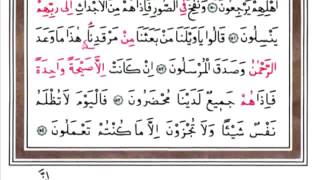 اَهْلِهِمْ يَرْجِعُونَ ﴿٥٠﴾ وَنُفِخَ فِي الصُّورِ فَاِذَا هُمْ مِنَ الْاَجْدَاثِ اِلٰى رَبِّهِمْ
يَنْسِلُونَ ﴿٥١﴾ قَالُوا يَا وَيْلَنَا مَنْ بَعَثَنَا مِنْ مَرْقَدِنَا هٰذَا مَا وَعَدَ
الرَّحْمٰنُ وَصَدَقَ الْمُرْسَلُونَ ﴿٥٢﴾ اِنْ كَانَتْ اِلَّا صَيْحَةً وَاحِدَةً
فَاِذَا هُمْ جَمِيعٌ لَدَيْنَا مُحْضَرُونَ ﴿٥٣﴾ فَالْيَوْمَ لَا تُظْلَمُ
نَفْسٌ شَيْئًا وَلَا تُجْزَوْنَ اِلَّا مَا كُنْتُمْ تَعْمَلُونَ ﴿٥٤﴾
اِنَّ